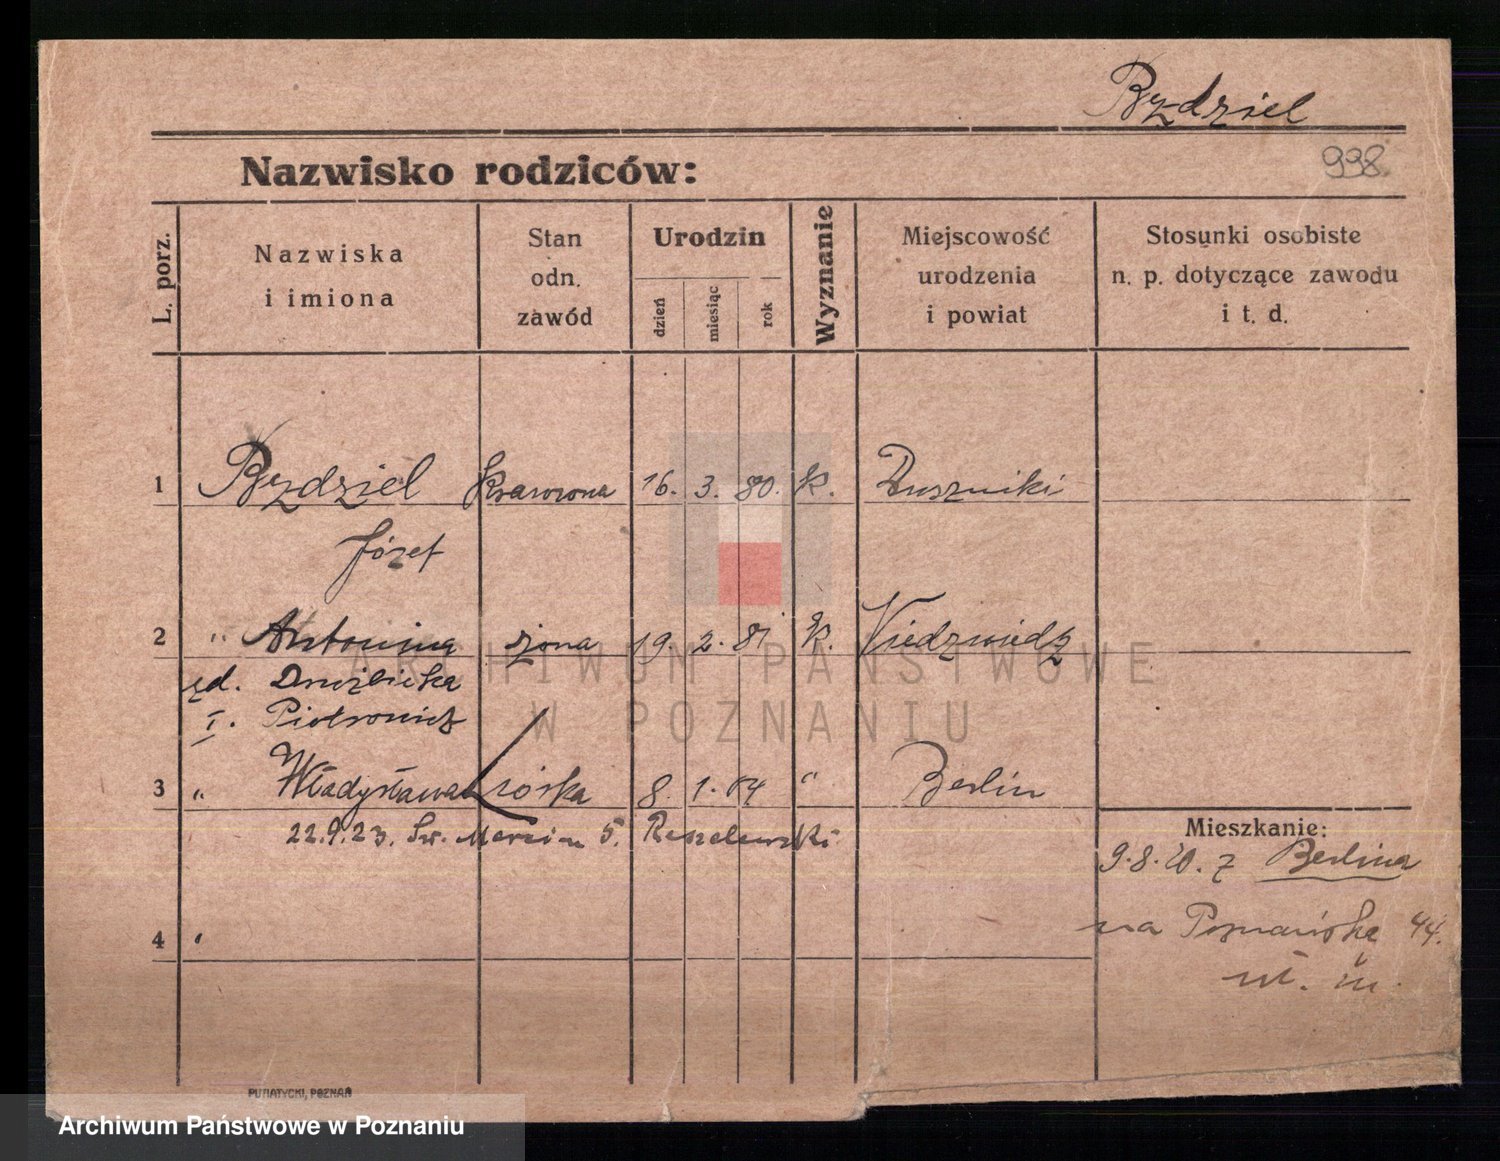 Bzdziel
Nazwisko rodziców:
998
L. porz.
Nazwiska i imiona
Stan odn. zawód
Urodzin
dzień
miesiąc
rok
Wyznanie
Miejscowość urodzenia i powiat
Stosunki osobiste n. p. dotyczące zawodu i t. d.
1 Bzdziel 16. 3. 80. k. Duszniki
Józef
2 " Antonina żona 19. 2. 81 k. Niedzwiedz
Piotrowicz
3 " Władysława córka 8 1. 04 " Berlin
22.9.23. Św. Marcin 5.
Mieszkanie:
9.8.20. z Berlina
na Poznańską 44.
4
PUTIATYCKI, POZNAŃ
ARCHIWUM PAŃSTWOWE
W POZNANIU
Archiwum Państwowe w Poznaniu